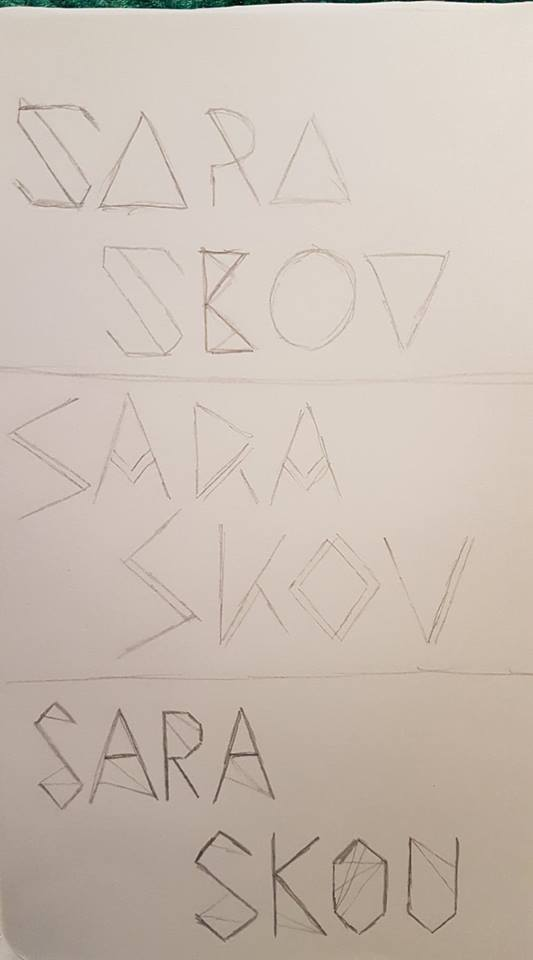 SARA
SKOV
SARA
SKOV
SARA
SKOV